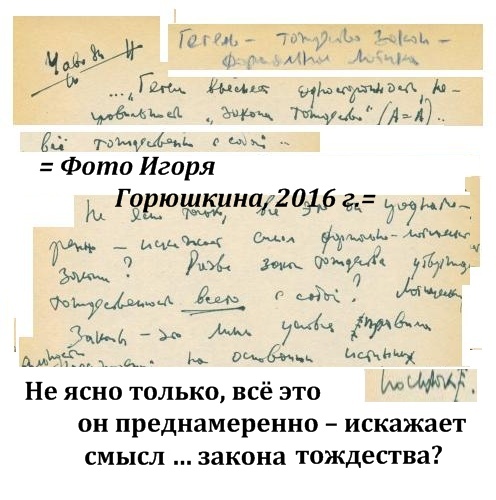 Гегель – тождество закон –
формальная логика
... „Гегель выясняет односторонность, не-
правильность „закона тождества“ (A = A) ..
всё тождественно с собой ..
= Фото Игоря
Горюшкина, 2016 г.=
Не ясно только, всё это он
– искажает смысл формально-логического
закона? Разве закон тождества утверждает
тождественность всего с собой? Логические
Законы – это лишь условие правила
на основании истинных
Не ясно только, всё это
он преднамеренно – искажает
смысл ... закона тождества?